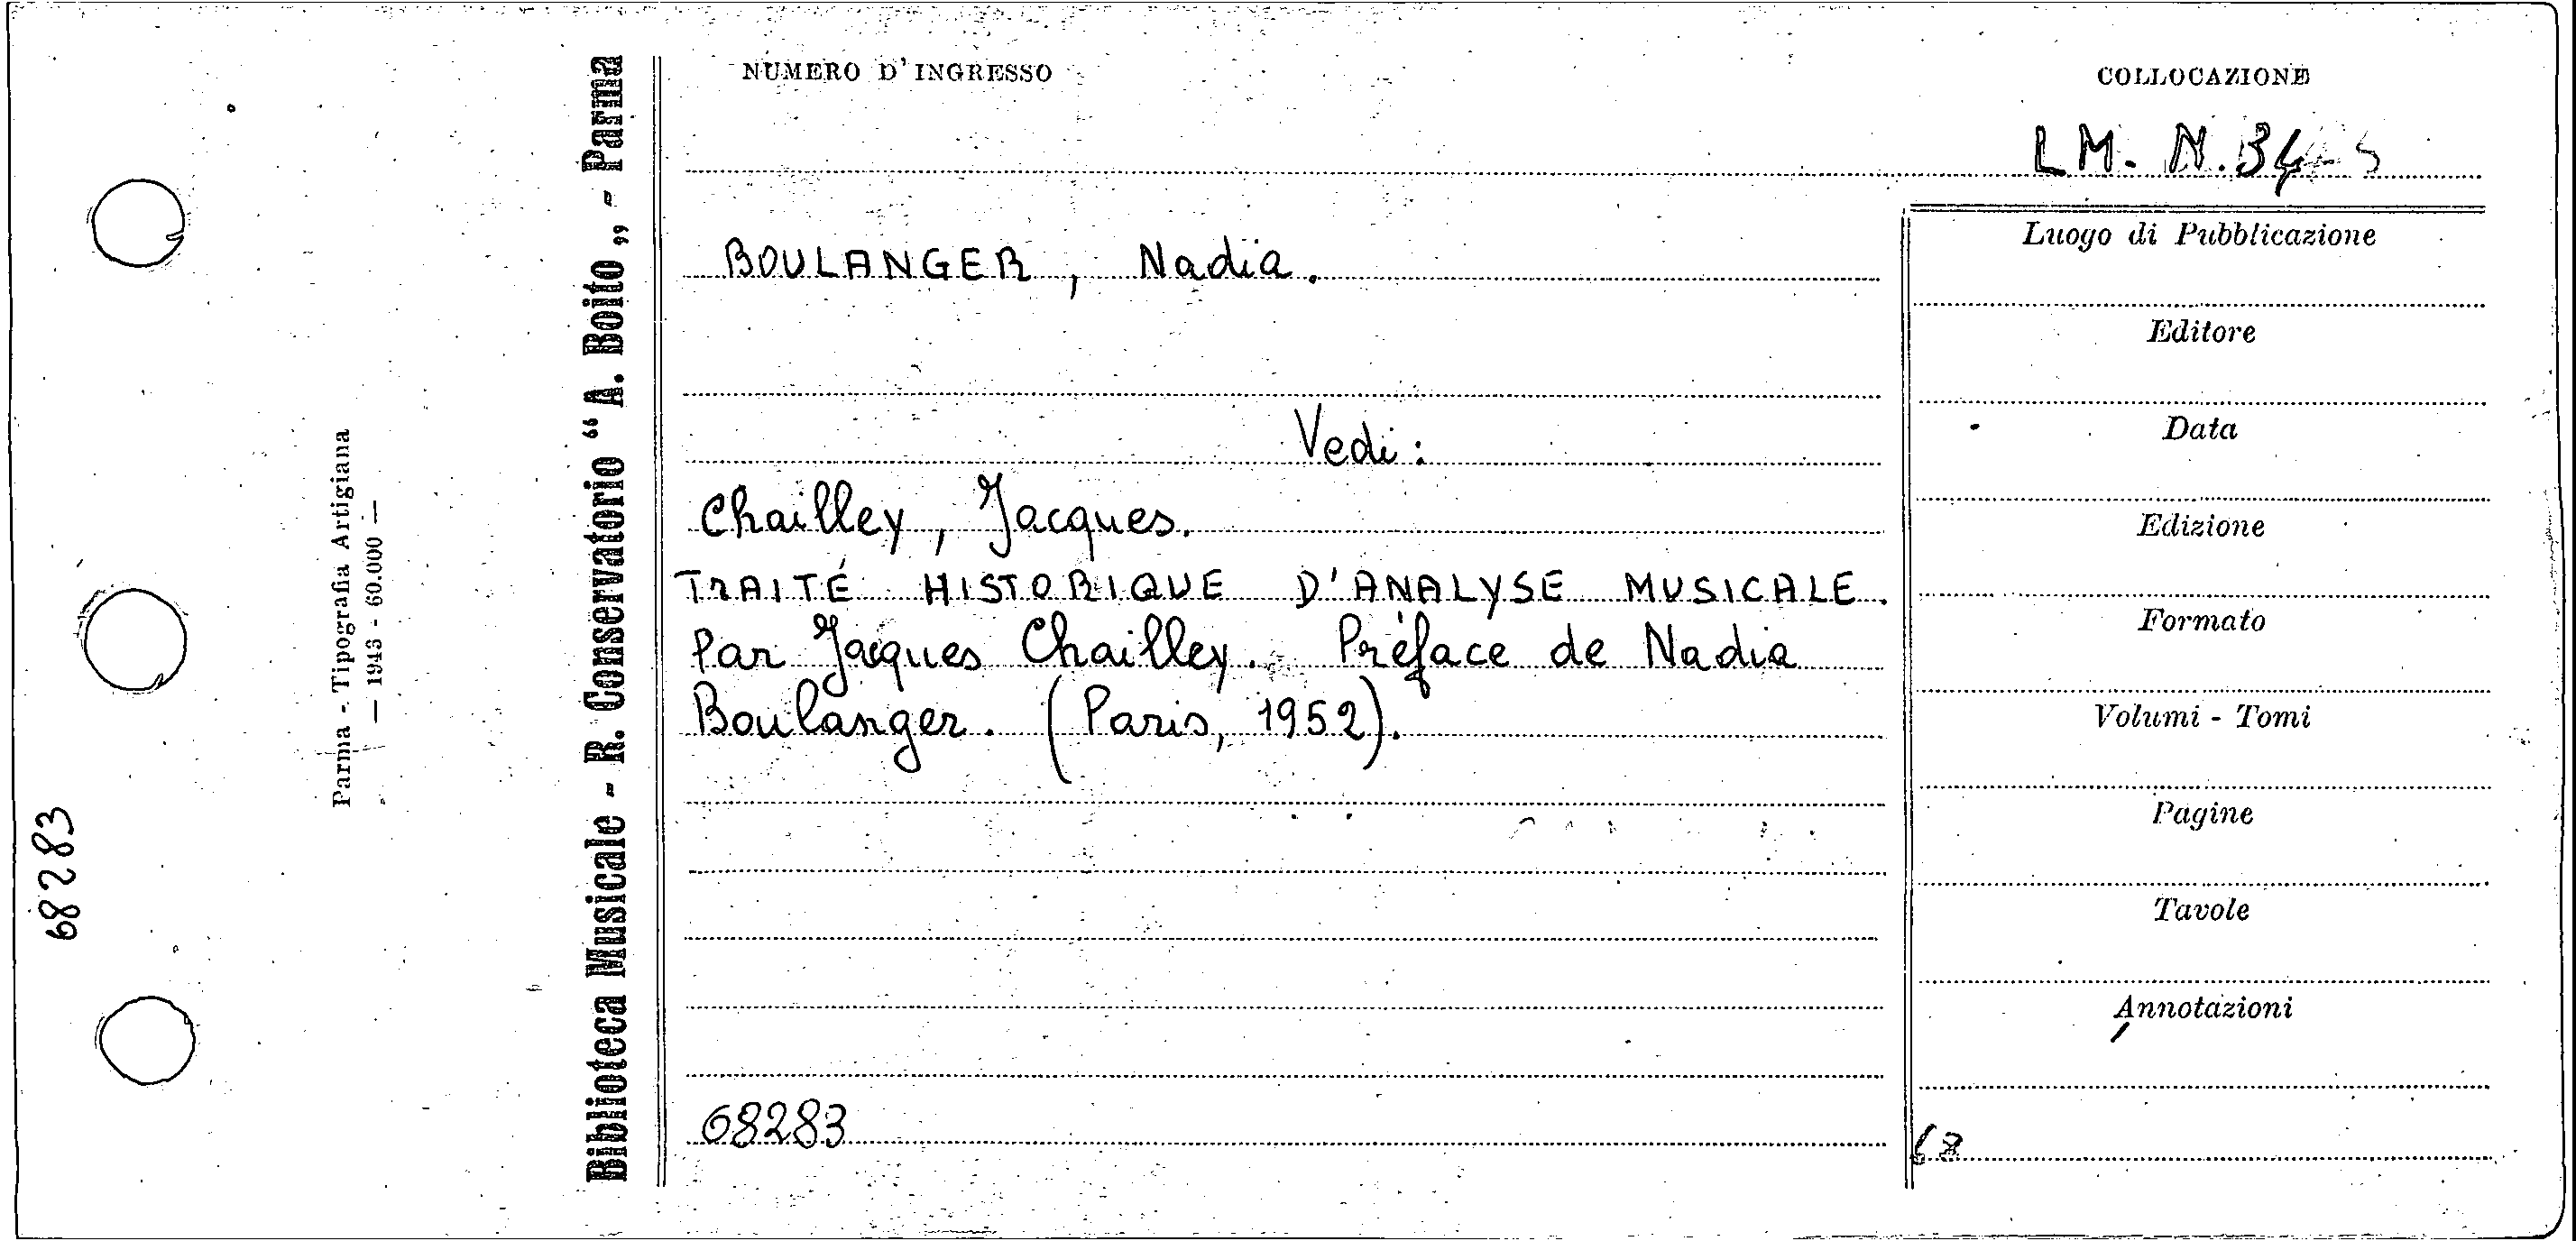 NUMERO D'INGRESSO
COLLOCAZIONE
LM. N.34
BOULANGER, Nadia.
Vedi:
Chailley, Jacques.
TRAITÉ HISTORIQUE D'ANALYSE MUSICALE.
Par Jacques Chailley. Préface de Nadia
Boulanger. (Paris, 1952).
68283
Luogo di Pubblicazione
Editore
Data
Edizione
Formato
Volumi - Tomi
Pagine
Tavole
Annotazioni
68
Biblioteca Musicale - R. Conservatorio "A. Boito„ - Parma
Parma - Tipografia Artigiana
— 1943 - 60.000 —
68283